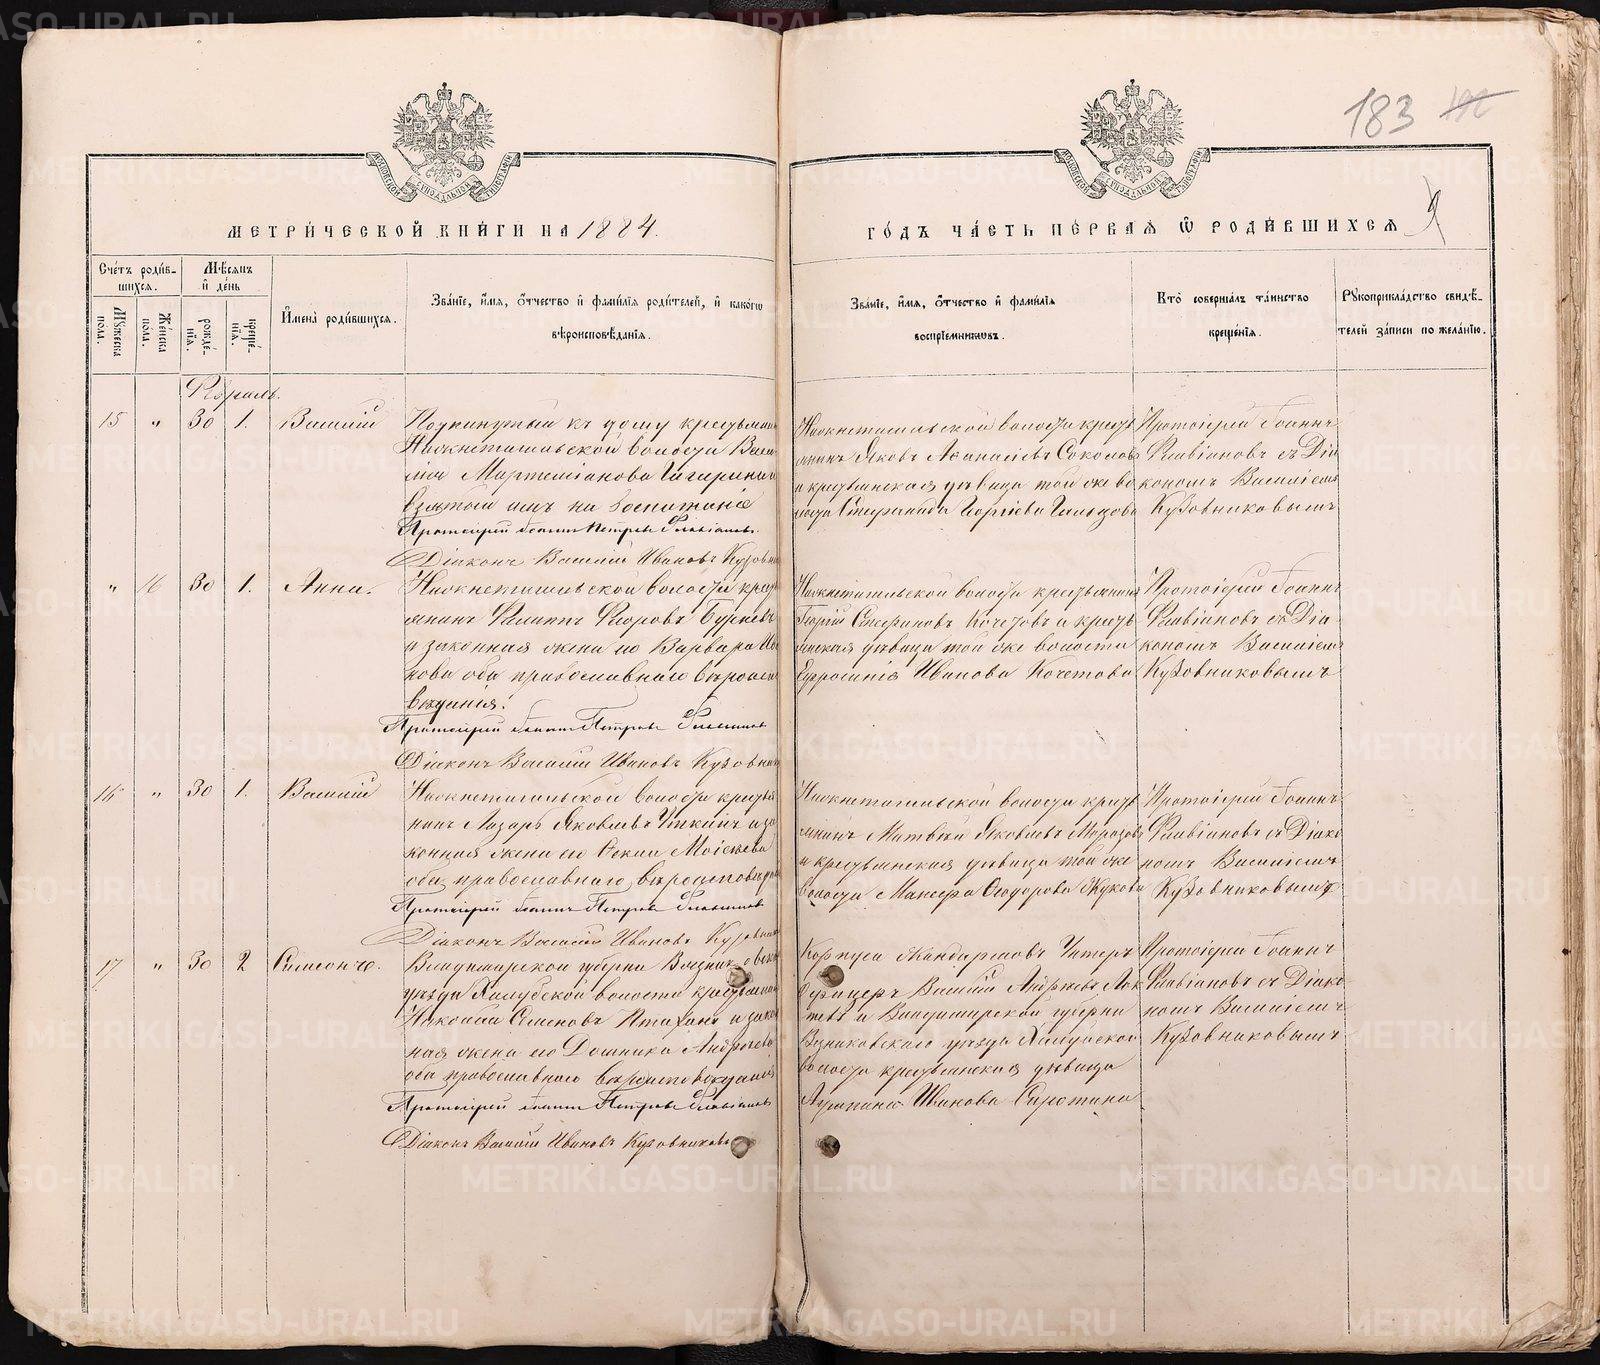 183
МЕТРИ́ЧЕСКОЙ КНИ́ГИ НА 1884
ГО́ДЪ ЧА́СТЬ ПЕ́РВАЯ Ѿ РОДИ́ВШИХСЯ
Сче́тъ роди́в-
шихся.
Мѣсяцъ
и де́нь
Му́жеска
пола.
Же́нска
пола.
рожде́-
нія.
креще́-
нія.
Имена̀ роди́вшихся.
Зва́ніе, и́мя, о́тчество и фами́лія роди́телей, и како́гѡ
вѣроисповѣ́данія.
Зва́ніе, и́мя, о́тчество и фами́лія
воспріе́мниковъ.
Кто̀ соверша́лъ та́инство
креще́нія.
Рꙋкоприкла́дство свидѣ́-
телей за́писи по жела́нію.
15 " 30 1. Василій
Подкинутый къ дому крестьянин
Нижнетагильской волости Васи
лія Мартеміанова
взятый имъ на воспитаніе
Протоіерей Іоаннъ Петровъ Флавіановъ.
Діаконъ Василій Ивановъ Кузовни
Нижнетагильской волости кресть
янинъ Яковъ Аѳанасіевъ Соколовъ
и крестьянская дѣвица той же во
лости Стефанида Георгіева
Протоіерей Іоаннъ
Флавіановъ съ Діа
кономъ Василіемъ
Кузовниковымъ
" 16 30 1. Анна.
Нижнетагильской волости кресть
янинъ Филиппъ Ѳедоровъ
и законная жена его Варвара Ива
нова оба православнаго вѣроиспо
вѣданія.
Протоіерей Іоаннъ Петровъ Флавіановъ
Діаконъ Василій Ивановъ Кузовник
Нижнетагильской волости крестьянинъ
Георгій Стефановъ Кочетовъ и кресть
янская дѣвица той же волости
Евфросинія Иванова Кочетова
Протоіерей Іоаннъ
Флавіановъ съ Діа
кономъ Василіемъ
Кузовниковымъ
16 " 30 1. Василій
Нижнетагильской волости крестья
нинъ Лазарь Яковлевъ Уткинъ и за
конная жена его Ѳекла Моисеева
оба православнаго вѣроисповѣда
Протоіерей Іоаннъ Петровъ Флавіановъ
Діаконъ Василій Ивановъ Кузовник
Нижнетагильской волости кресть
янинъ Матвѣй Яковлевъ Морозовъ
и крестьянская дѣвица той же
волости Ѳеодорова Жукова
Протоіерей Іоаннъ
Флавіановъ съ Діако
номъ Василіемъ
Кузовниковымъ
17 " 30 2 Симеонъ.
Владимирской губерніи Вязниковска
уѣзда волости крестьянин
Николай Семеновъ и закон
ная жена его Домника Андреева
оба православнаго вѣроисповѣданія
Протоіерей Іоаннъ Петровъ Флавіановъ
Діаконъ Василій Ивановъ Кузовниковъ
Корпуса Жандармовъ Унтеръ
Офицеръ Василій Андреевъ
и Владимирской губерніи
Вязниковскаго уѣзда
волости крестьянская дѣвица
Иванова Сиротина
Протоіерей Іоаннъ
Флавіановъ съ Діако
номъ Василіемъ
Кузовниковымъ
METRIKI.GASO-URAL.RU